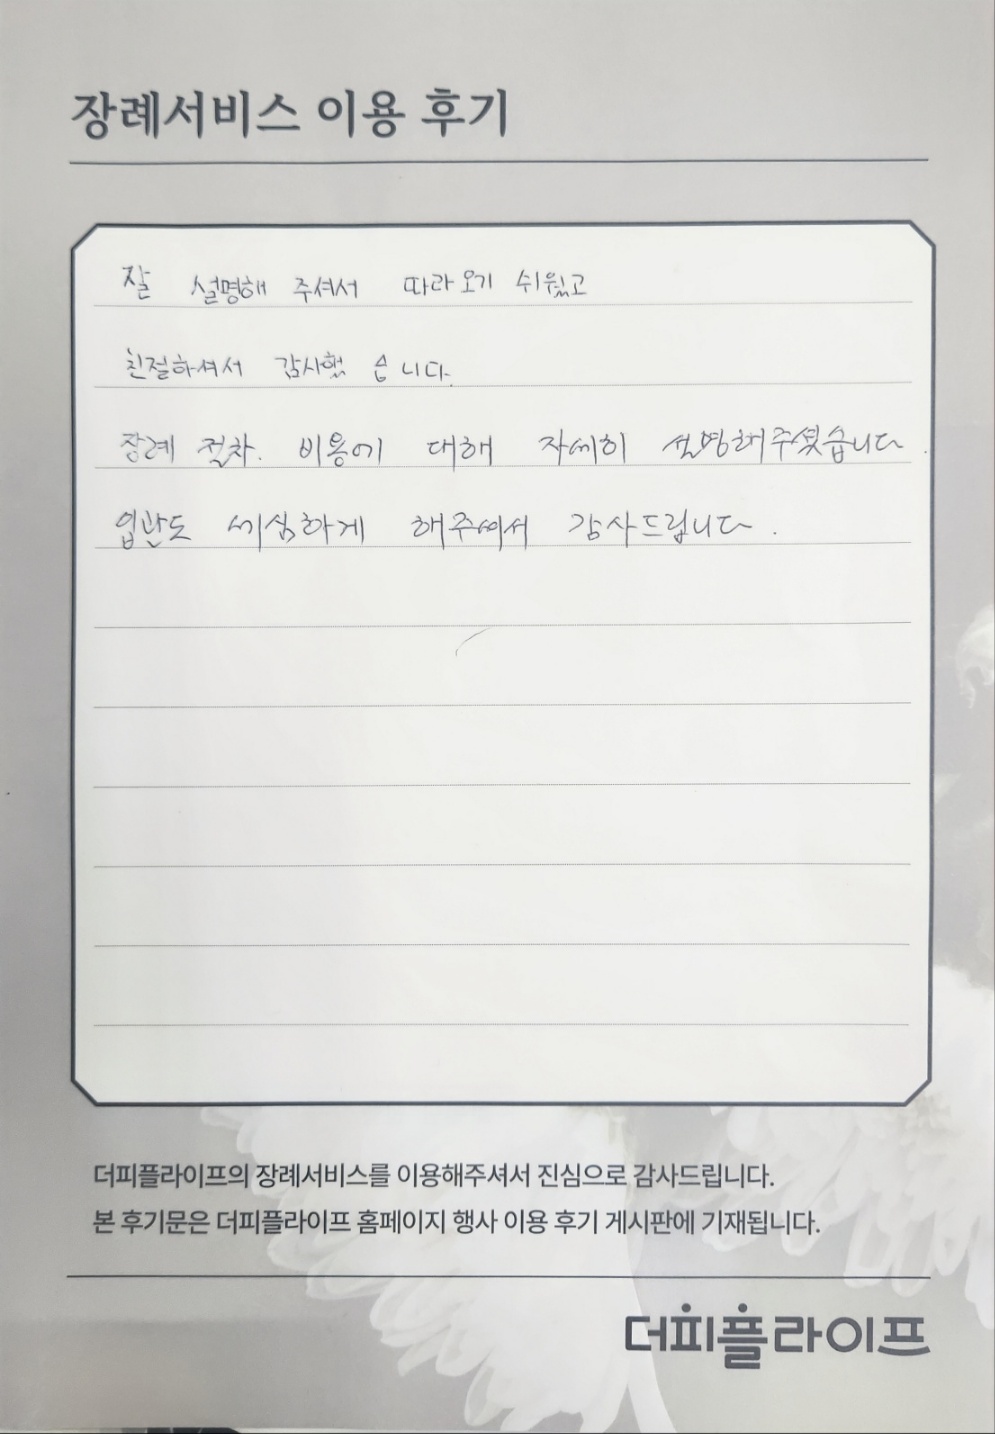 장례서비스 이용 후기
잘 설명해 주셔서 따라오기 쉬웠고
친절하셔서 감사했습니다.
장례 절차. 비용에 대해 자세히 설명해주셨습니다.
입관도 세심하게 해주셔서 감사드립니다.
더피플라이프의 장례서비스를 이용해주셔서 진심으로 감사드립니다.
본 후기문은 더피플라이프 홈페이지 행사 이용 후기 게시판에 기재됩니다.
더피플라이프